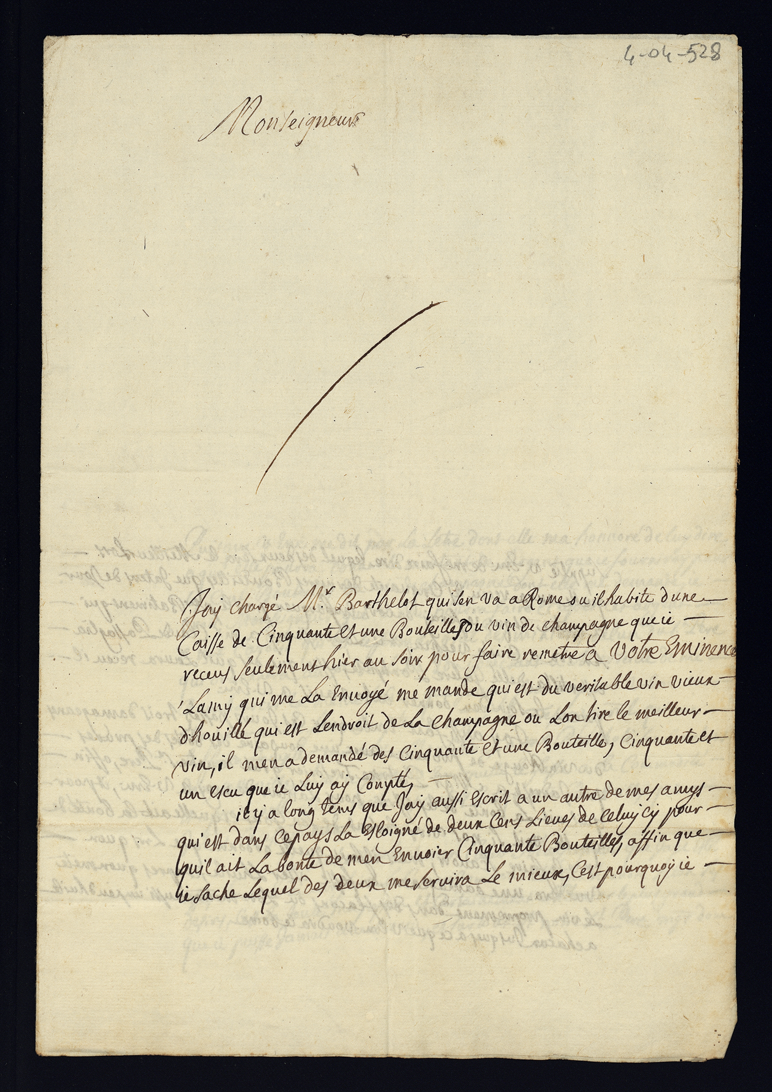 4-04-528
Monseigneur
J'ay chargé Mr. Barthelot qui s'en va a Rome ou il habite d'une
Caisse de Cinquante et une Bouteilles du vin de champagne que ie
receus seulement hier au soir pour faire remetre a Votre Eminence
L'amy qui me La Envoyé me mande qu'est du veritable vin vieux
d'houillé qui est L'endroit de La champagne ou L'on tire le meilleur
vin, il m'en a demandé des Cinquante et une Bouteille, Cinquante et
un escu que ie Luy ay Compté,
il y a long tems que J'ay aussi Escrit a un autre de mes amys
qu'est dans ce pays La Esloigné de deux Cens Lieues de Celuy Cy pour
qu'il ait La bonté de m'en Envoier Cinquante Bouteilles, affin que
ie sache Lequel des deux me servira Le mieux, C'est pourquoy ie